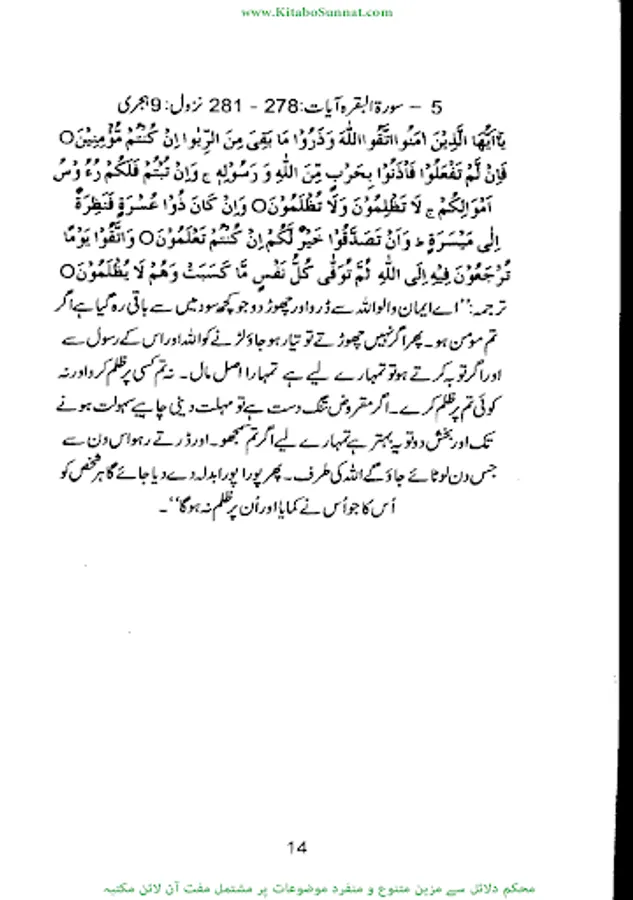 www.KitaboSunnat.com
5 – سورۃ البقرہ آیات: 278 - 281 نزول: 9 ہجری
یٰۤاَیُّهَا الَّذِیْنَ اٰمَنُوا اتَّقُوا اللّٰهَ وَ ذَرُوْا مَا بَقِیَ مِنَ الرِّبٰوا اِنْ كُنْتُمْ مُّؤْمِنِیْنَ○
فَاِنْ لَّمْ تَفْعَلُوْا فَاْذَنُوْا بِحَرْبٍ مِّنَ اللّٰهِ وَ رَسُوْلِهٖ ج وَاِنْ تُبْتُمْ فَلَكُمْ رُءُ وْسُ
اَمْوَالِكُمْ ج لَا تَظْلِمُوْنَ وَلَا تُظْلَمُوْنَ○ وَاِنْ كَانَ ذُوْا عُسْرَةٍ فَنَظِرَةٌ
اِلٰی مَیْسَرَةٍ ط وَاَنْ تَصَدَّقُوْا خَیْرٌ لَّكُمْ اِنْ كُنْتُمْ تَعْلَمُوْنَ○ وَاتَّقُوْا یَوْمًا
تُرْجَعُوْنَ فِیْهِ اِلَی اللّٰهِ ثُمَّ تُوَفّٰی كُلُّ نَفْسٍ مَّا كَسَبَتْ وَهُمْ لَا یُظْلَمُوْنَ○
ترجمہ: ’’اے ایمان والو اللہ سے ڈرو اور چھوڑ دو جو کچھ سود میں سے باقی رہ گیا ہے اگر
تم مومن ہو۔ پھر اگر نہیں چھوڑتے تو تیار ہو جاؤ لڑنے کو اللہ اور اس کے رسول سے
اور اگر توبہ کرتے ہو تو تمہارے لیے ہے تمہارا اصل مال۔ نہ تم کسی پر ظلم کرو اور نہ
کوئی تم پر ظلم کرے۔ اگر مقروض تنگ دست ہے تو مہلت دینی چاہیے سہولت ہونے
تک اور بخش دو تو یہ بہتر ہے تمہارے لیے اگر تم سمجھو۔ اور ڈرتے رہو اس دن سے
جس دن لوٹائے جاؤ گے اللہ کی طرف۔ پھر پورا پورا بدلہ دے دیا جائے گا ہر شخص کو
اُس کا جو اُس نے کمایا اور اُن پر ظلم نہ ہوگا‘‘۔
14
محکم دلائل سے مزین متنوع و منفرد موضوعات پر مشتمل مفت آن لائن مکتبہ